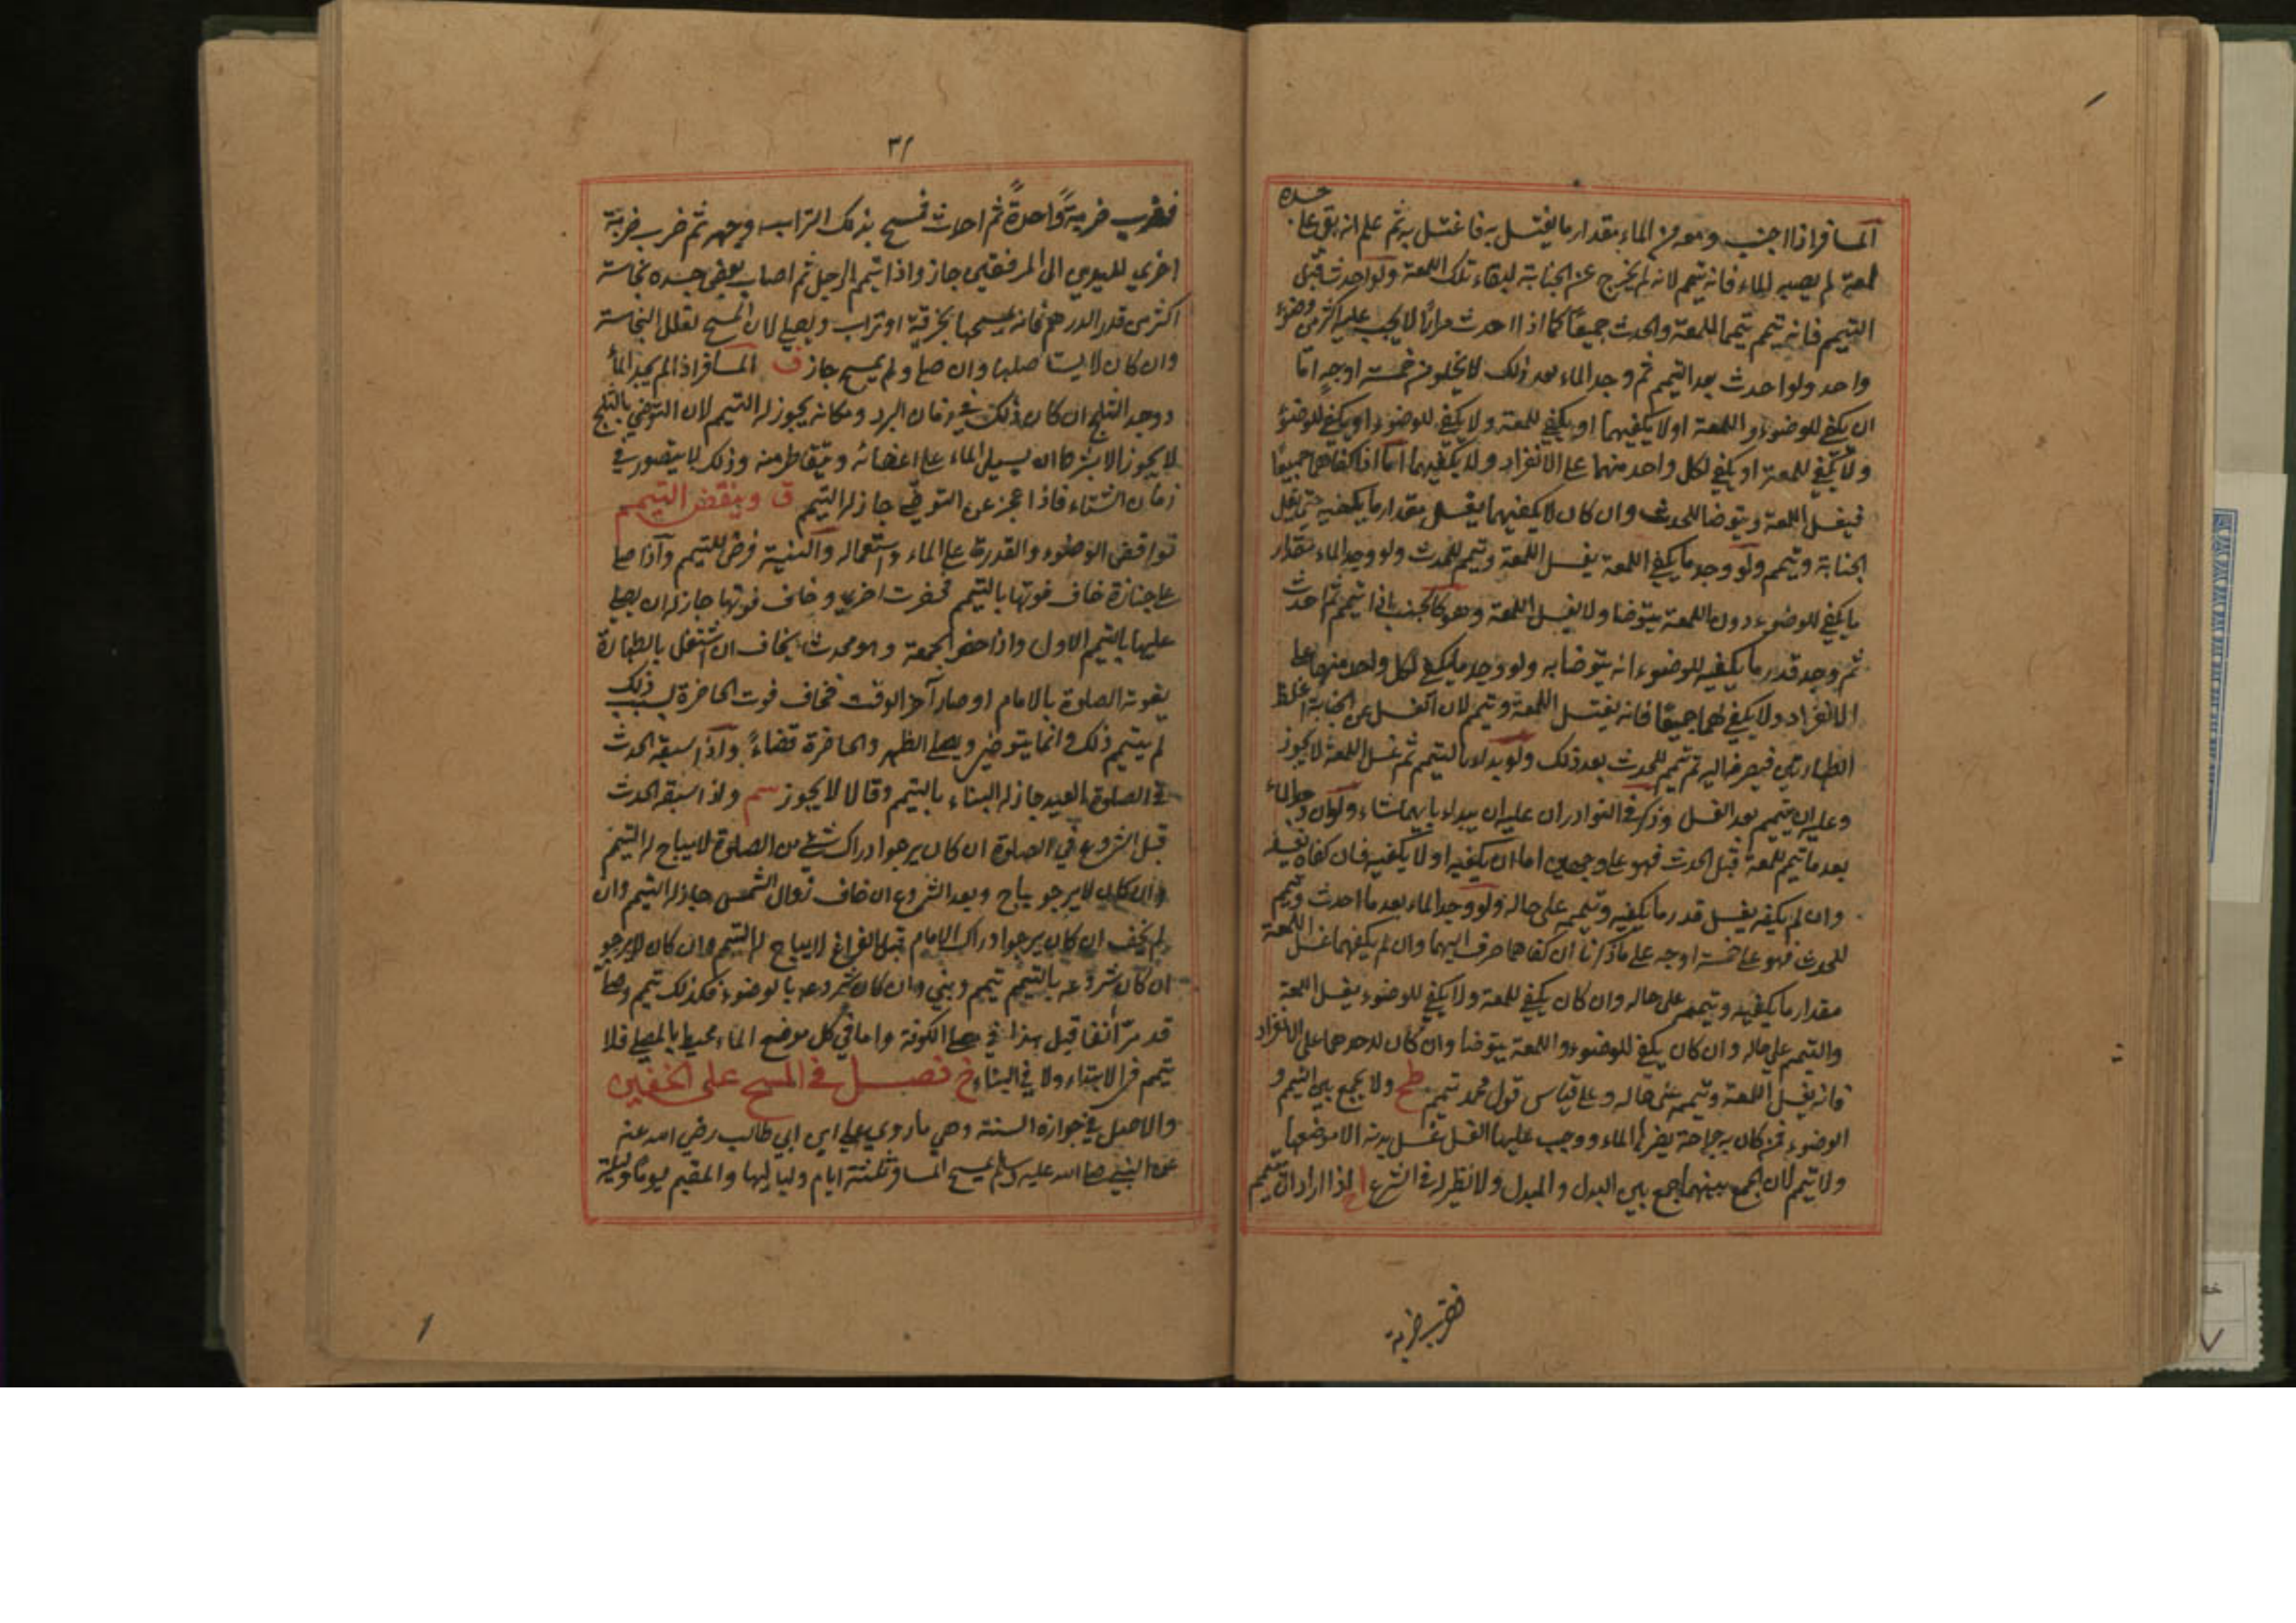 المسافر اذا اجنب ومعه من الماء مقدار ما يغتسل به فاغتسل به ثم علم انه بقى على جسده
لمعة لم يصبه الماء فانه تيمم لانه لم يخرج عن الجنابة لبقاء تلك اللمعة ولو احدث قبل
التيمم فانه تيمم تيمما للمعة والحدث جميعًا كما اذا احدث مرارًا لا يجب عليه اكثر من وضوء
واحد ولو احدث بعد التيمم ثم وجد الماء بعد ذلك لا يخلو من خمسة اوجه امّا
ان يكفي للوضوء واللمعة او لا يكفيهما او يكفي للمعة ولا يكفي للوضوء او يكفي للوضوء
ولا يكفي للمعة او يكفي لكل واحد منهما على الانفراد ولا يكفيهما امّا اذا كفاهما جميعًا
فيغسل اللمعة ويتوضا للحدث وان كان لا يكفيهما يغسل مقدار ما يكفيه حتى تقل
الجنابة وتيمم ولو وجد ما يكفي اللمعة يغسل اللمعة وتيمم للحدث ولو وجد الماء مقدار
ما يكفي للوضوء دون اللمعة يتوضا ولا يغسل اللمعة وهو كالجنب اذا تيمم ثم احدث
ثم وجد قدر ما يكفيه للوضوء انه يتوضا به ولو وجد ما يكفي لكل واحد منهما على
الانفراد ولا يكفي لهما جميعًا فانه يغتسل اللمعة وتيمم لان الغسل عن الجنابة اغلظ
الطهارتين فيصرفه اليه ثم تيمم للحدث بعد ذلك ولو بدا بالتيمم ثم غسل اللمعة لا يجوز
وعليه ان يتيمم بعد الغسل وذكر في النوادر ان عليه ان يبداء بايهما شاء ولو ان وجد الماء
بعد ما تيمم للمعة قبل الحدث فهو على وجهين اما ان يكفيه او لا يكفيه فان كفاه يغسله
وان لم يكفيه يغسل قدر ما يكفيه وتيممه على حاله ولو وجد الماء بعد ما احدث وتيمم
للحدث فهو على خمسة اوجه على ما ذكرنا ان كفاهما صرف اليهما وان لم يكفهما غسل اللمعة
مقدار ما يكفيه وتيممه على حاله وان كان يكفي للمعة ولا يكفي للوضوء يغسل اللمعة
والتيمم على حاله وان كان يكفي للوضوء واللمعة يتوضا وان كان لاحدهما على الانفراد
فانه يغسل اللمعة وتيممه على حاله وعلى قياس قول محمد تيمم طح ولا يجمع بين التيمم و
الوضوء فمن كان به جراحة يضرها الماء ووجب عليها الغسل غسل بدنه الا موضعها
ولا تيمم لان الجمع بينهما جمع بين البدل والمبدل ولا نظير له في الشرع اذا اراد ان تيمم
فضرب ضربة
٣١
فضرب ضربةً واحدةً ثم احدث فمسح بذلك التراب وجهه ثم ضرب ضربة
اخري لليدين الى المرفقين جاز واذا تيمم الرجل ثم اصاب بعض جسده نجاسة
اكثر من قدر الدرهم فانه يمسحها بخرقة او تراب ويصلي لان المسح يقلل النجاسة
وان كان لا يستاصلها وان صلى ولم يمسح جاز ف المسافر اذا لم يجد الماء
ووجد الثلج ان كان ذلك في زمان البرد ومكانه يجوز له التيمم لان التوضي بالثلج
لا يجوز الا بشرط ان يسيل الماء على اعضائه وتيقاطر منه وذلك لا يتصور في
زمان الشتاء فاذا عجز عن التوضي جاز له التيمم ق وينقض التيمم
نواقض الوضوء والقدرة على الماء واستعماله والنية فرض للتيمم واذا صلى
على جنازة خاف فوتها بالتيمم فحضرت اخرى وخاف فوتها جاز له ان يصلي
عليها بالتيمم الاول واذا حضر الجمعة وهو محدث يخاف ان اشتغل بالطهارة
يفوته الصلوة بالامام او صار آخر الوقت فخاف فوت الحاضرة بسبب ذلك
لم يتيمم ذلك وانما يتوضى ويصلي الظهر والحاضرة قضاءً واذا سبقه الحدث
في الصلوة العيد جاز له البناء بالتيمم وقالا لا يجوز سم واذا سبقه الحدث
قبل الشروع في الصلوة ان كان يرجوا ادراك شئ من الصلوة لا يباح له التيمم
وان كان لا يرجو يباح وبعد الشروع ان خاف زوال الشمس جاز له التيمم وان
لم يخف ان كان يرجوا ادراك الامام قبل الفراغ لا يباح له التيمم وان كان لا يرجو
ان كان شروعه بالتيمم تيمم وبني وان كان شروعه بالوضوء فكذلك تيمم وما
قد مرّ آنفا قيل هذا في مصلى الكوفة واما في كل موضع الماء محيط بالمصلي فلا
تيمم في الابتداء ولا في البناء خ فصل في المسح على الخفين
والاصل في جوازه السنة وهي ما روي علي ابن ابي طالب رضي الله عنه
عن النبي صلى الله عليه وسلم يمسح المسافر ثلثة ايام ولياليها والمقيم يومًا وليلة